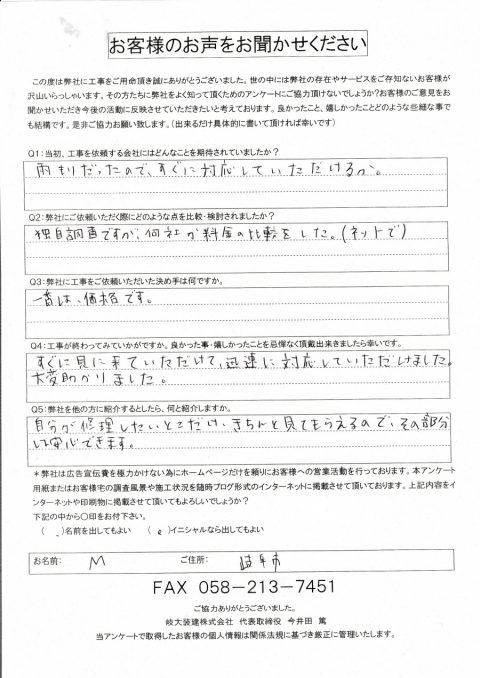 お客様のお声をお聞かせください
この度は弊社に工事をご用命頂き誠にありがとうございました。世の中には弊社の存在やサービスをご存知ないお客様が
沢山いらっしゃいます。その方たちに弊社をよく知って頂くためのアンケートにご協力頂けないでしょうか?お客様のご意見をお
聞かせいただき今後の活動に反映させていただきたいと考えております。良かったこと、嬉しかったことどのような些細な事で
も結構です。是非ご協力お願い致します。(出来るだけ具体的に書いて頂ければ幸いです)
Q1:当初、工事を依頼する会社にはどんなことを期待されていましたか?
雨もりだったので、すぐに対応していただけるか。
Q2:弊社にご依頼いただく際にどのような点を比較・検討されましたか?
独自調査ですが、何社か料金の比較をした。(ネットで)
Q3:弊社に工事をご依頼いただいた決め手は何ですか。
一番は、価格です。
Q4:工事が終わってみていかがですか。良かった事・嬉しかったことを忌憚なく頂戴出来きましたら幸いです。
すぐに見に来ていただけて、迅速に対応していただけました。
大変助かりました。
Q5:弊社を他の方に紹介するとしたら、何と紹介しますか。
自分が修理したいとこだけ、きちんと見てもらえるので、その部分
は安心できます。
*弊社は広告宣伝費を極力かけない為にホームページだけを頼りにお客様への営業活動を行っております。本アンケート
用紙またはお客様宅の調査風景や施工状況を随時ブログ形式のインターネットに掲載させて頂いております。上記内容をイ
ンターネットや印刷物に掲載させて頂いてもよろしいでしょうか?
下記の中から〇印をお付下さい。
( )名前を出してもよい ( )イニシャルなら出してもよい
お名前: M ご住所: 岐阜市
FAX 058-213-7451
ご協力ありがとうございました。
岐大装建株式会社 代表取締役 今井田 篤
当アンケートで取得したお客様の個人情報は関係法規に基づき厳正に管理いたします。